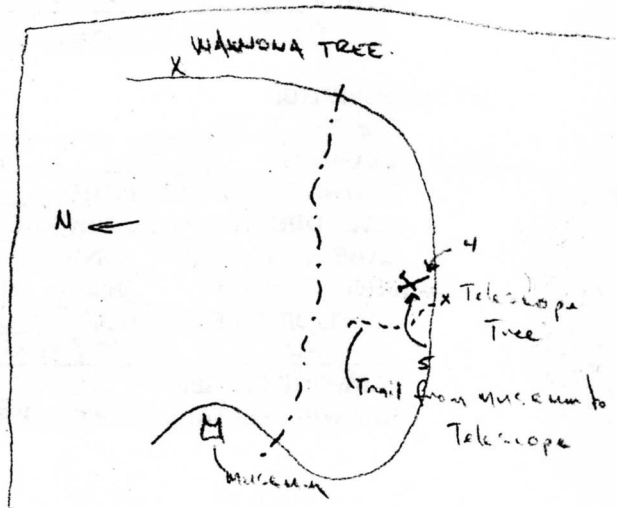 WAWNONA TREE.
X
N
4
X
x Telescope
Tree
5
Trail from museum to
Telescope
museum